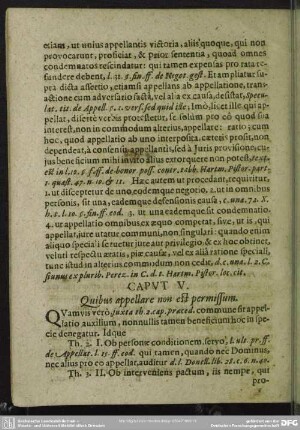 etiam, ut unius appellantis victoria, aliis quoque, qui non
provocarunt, proficiat, & prior sententia, quoad omnes
condemnatos rescindatur: qui tamen expensas pro rata re-
fundere debent, l. 11. §. fin. ff. de Negot. gest. Et ampliatur su-
pra dicta assertio, etiamsi appellans ab appellatione, trans-
actione cum adversario facta, vel alia ex causa, desistat,
tit. de Appell. verf. sed quid ille; Imò, licet ille, qui ap-
pellat, disertè verbis protestetur, se solum pro eò quod sua
interest, non in commodum alterius, appellare: ratio; cum
hoc, quod appellatio ab uno interposita, cæteris prosit, non
dependeat, à consensu appellantis, sed à Juris provisione, cu-
jus beneficium mihi invito alius extorquere non potest,
est in Hartm. Pistor. part.
1. quæst. 47. n. 12. & 11. Hæc autem ut procedant, requiritur,
1. ut disceptetur de uno eodemque negotio, 2. ut in omnibus
personis, sit una, eademque defensionis causa,
3. ut una eademque sit condemnatio.
4. ut appellatio omnibus ex æquo competat, sive, ut is, qui
appellat, jure utatur communi, non singulari: quando enim
aliquo speciali se tuetur jure aut privilegio, & ex hoc obtinet,
veluti respectu ætatis, piæ causæ, vel ex alia ratione speciali,
tunc istud in alterius commodum non cedit, d. c. une. l. 2. C.
Perez. in C. d. t. Hartm. Pistor. loc. cit.
CAPUT V.
Quibus appellare non est permissum.
QUamvis verò, juxta th. 2. cap. præced. commune sit appel-
latio auxilium, nonnullis tamen beneficium hoc in spe-
cie denegatur. Idque
Th. 1. I. Ob personæ conditionem, servo, l. ult. pr. ff.
de Appellat. l. 15. ff. eod. qui tamen, quando nec Dominus,
nec alius pro eo appellat, auditur
Th. 2. II. Ob interveniens pactum, iis nempe, qui
pro-